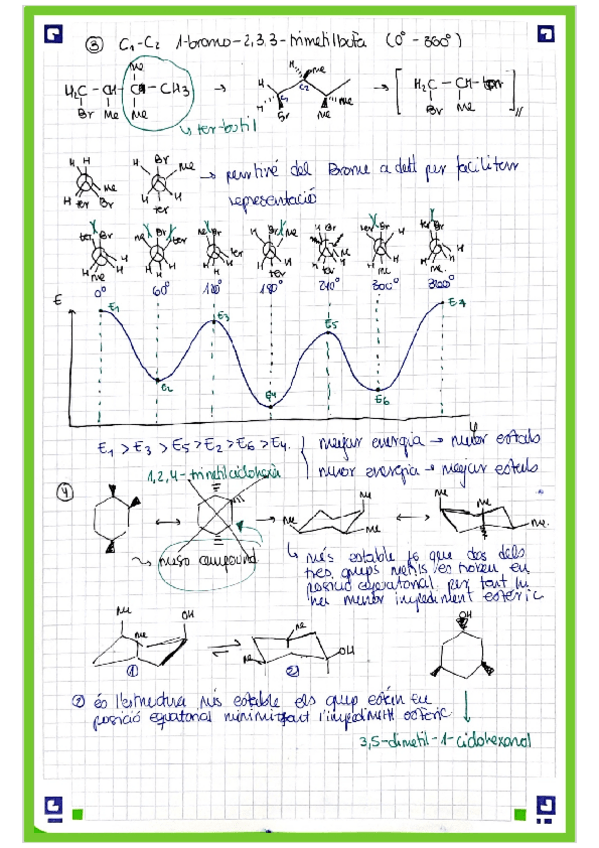 ③ C₁-C₂ 1-bromo-2,3,3-trimetilbutà (0° - 360°)
Me
H₂C - CH - CH - CH₃
Br Me Me
H Me
H C₂
H C₁
Br Me Me
H₂C - CH - ter
Br Me
↳ ter-butil
H H Me Br ter H
H Br Me H H ter
→ perritiré del Brome a dalt per facilitar
representació
ter Br H H Me H
Me Br ter H H H
Me Br ter H H H
Br Me H H ter
Br Me H ter H
ter Br H H Me
ter Br H H Me H
0° 60° 120° 180° 240° 300° 360°
E
E₁ E₂ E₃ E₄ E₅ E₆ E₇
φ
E₁ > E₃ > E₅ > E₂ > E₆ > E₄.
major energia → menor estab
menor energia → major estab
④ 1,2,4-trimetilciclohexà
Me Me Me
Me Me Me.
↔ → ↔
→ meso compound
↳ més estable ja que dos dels
tres grups metils es troben en
posició equatorial, per tant hi
ha menor impediment estèric
Me Me OH
①
⇌
Me Me OH
②
OH
② és l'estructura més estable els grup estàn en
posició equatorial minimitzant l'impediment estèric
3,5-dimetil-1-ciclohexanol